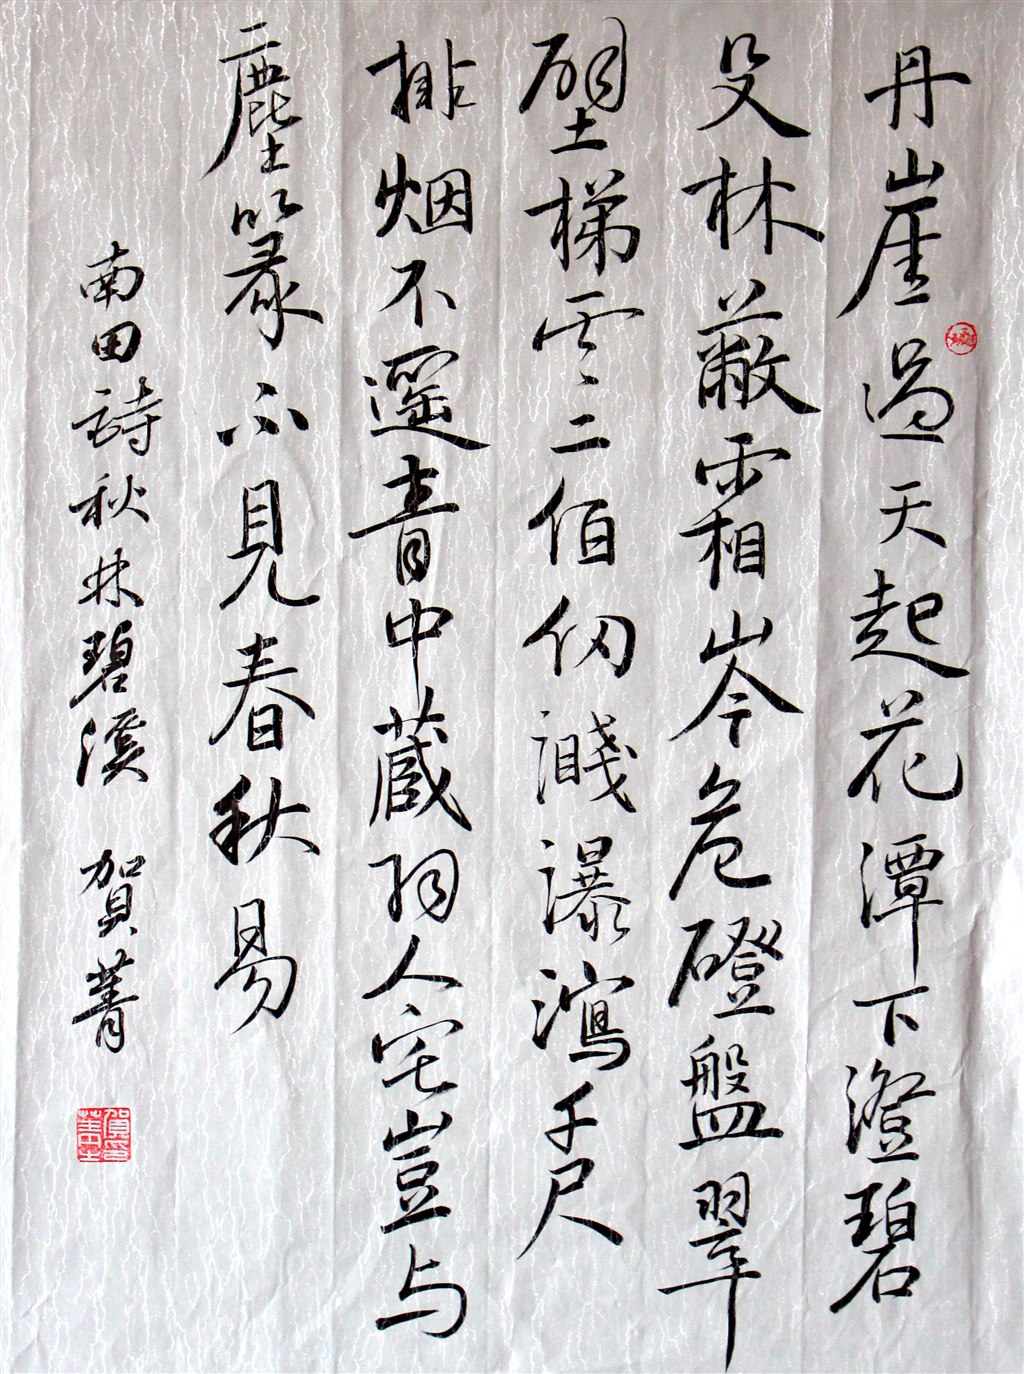 丹崖過天起花潭下澄碧
殳林蔽霜岑危磴盤翠
壁梯雲二佰仞濺瀑瀉千尺
排烟不遥青中藏羽人宅豈与
塵篆不見春秋易
南田詩秋林碧溪 賀菁